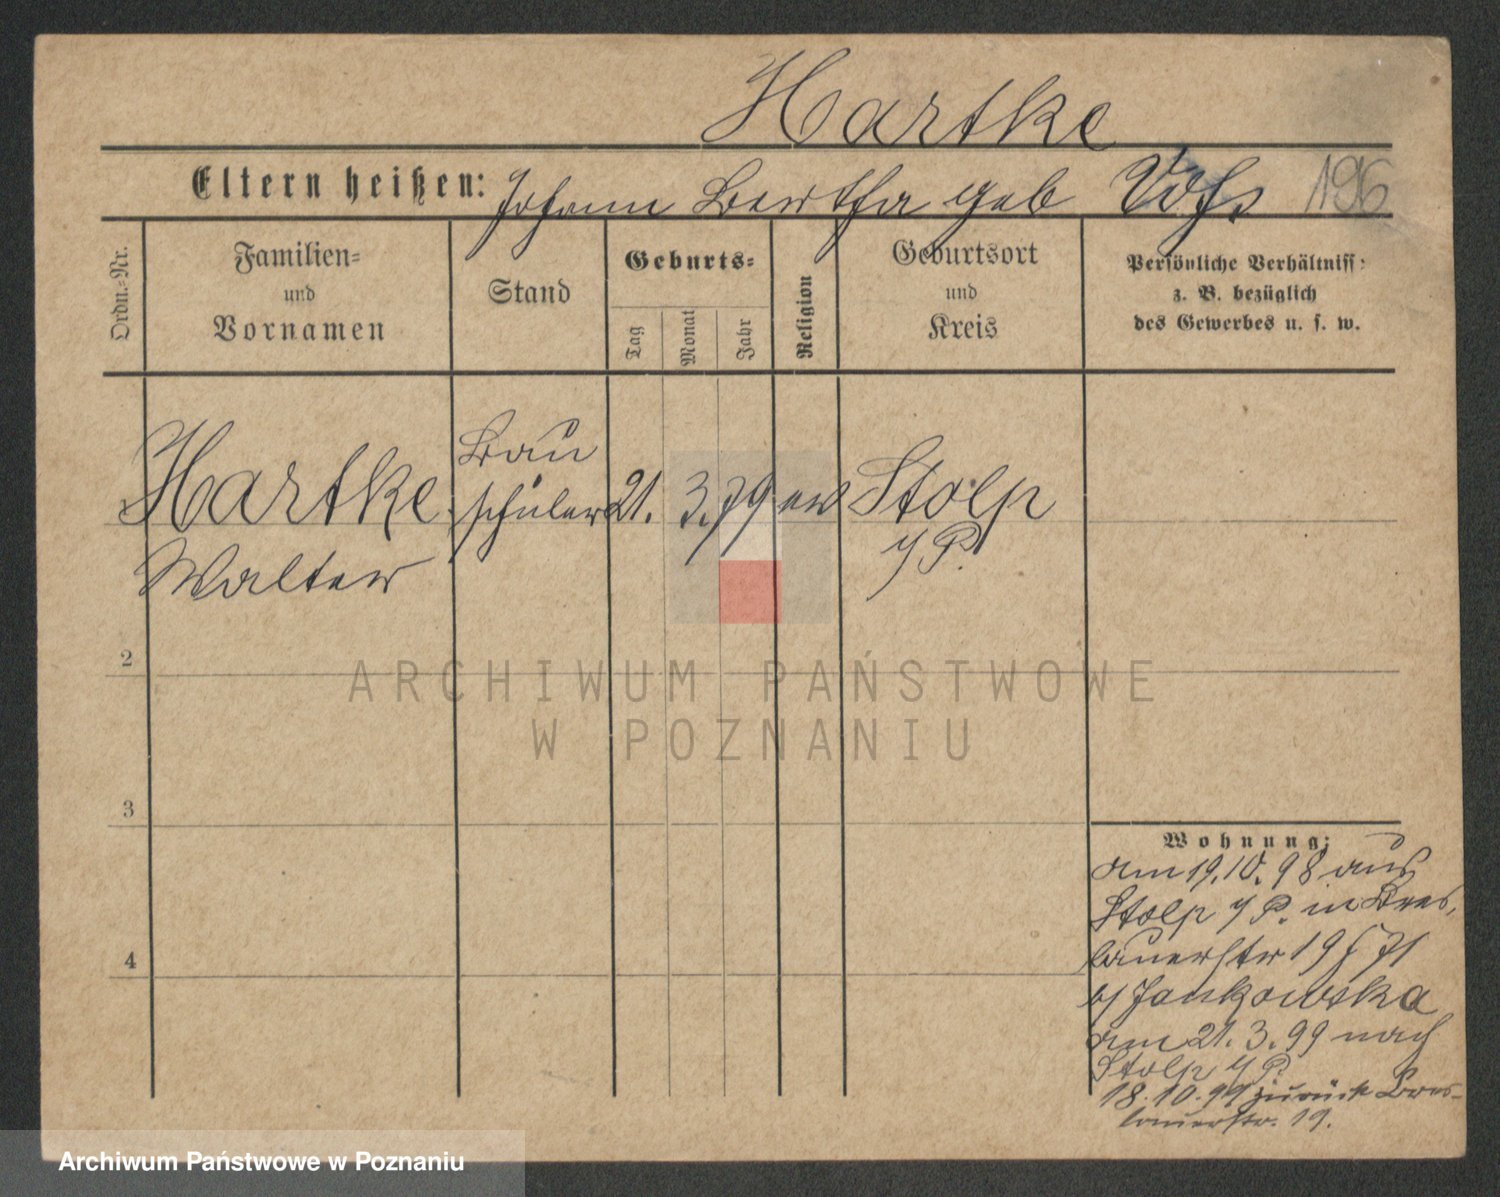 Hartke
Eltern heißen: Johann Bertha geb Voß 196
Ordn.-Nr.
Familien-
und
Vornamen
Stand
Geburts-
Tag
Monat
Jahr
Religion
Geburtsort
und
Kreis
Persönliche Verhältniss:
z. B. bezüglich
des Gewerbes u. s. w.
Hartke Bau
schüler 21. 3. 79 ev Stolp
Walter i/P.
2
3
4
ARCHIWUM PAŃSTWOWE
W POZNANIU
Wohnung:
am 19.10.98 aus
Stolp i/P. in Bres,
lauerstr 19
b/ Jankowska
am 21.3.99 nach
Stolp i/P.
18.10.99 zurück Bres-
lauerstr. 19.
Archiwum Państwowe w Poznaniu